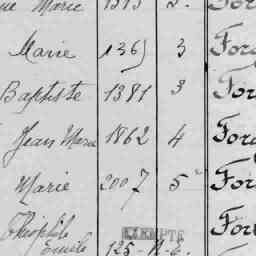 Marie 1313 2.
Marie 1365 3 For
Baptiste 1381 3 For
Jean Marie 1862 4 For
Marie 2007 5 For
Théophile For
Emile 125. A-6.
EXEMPTÉ